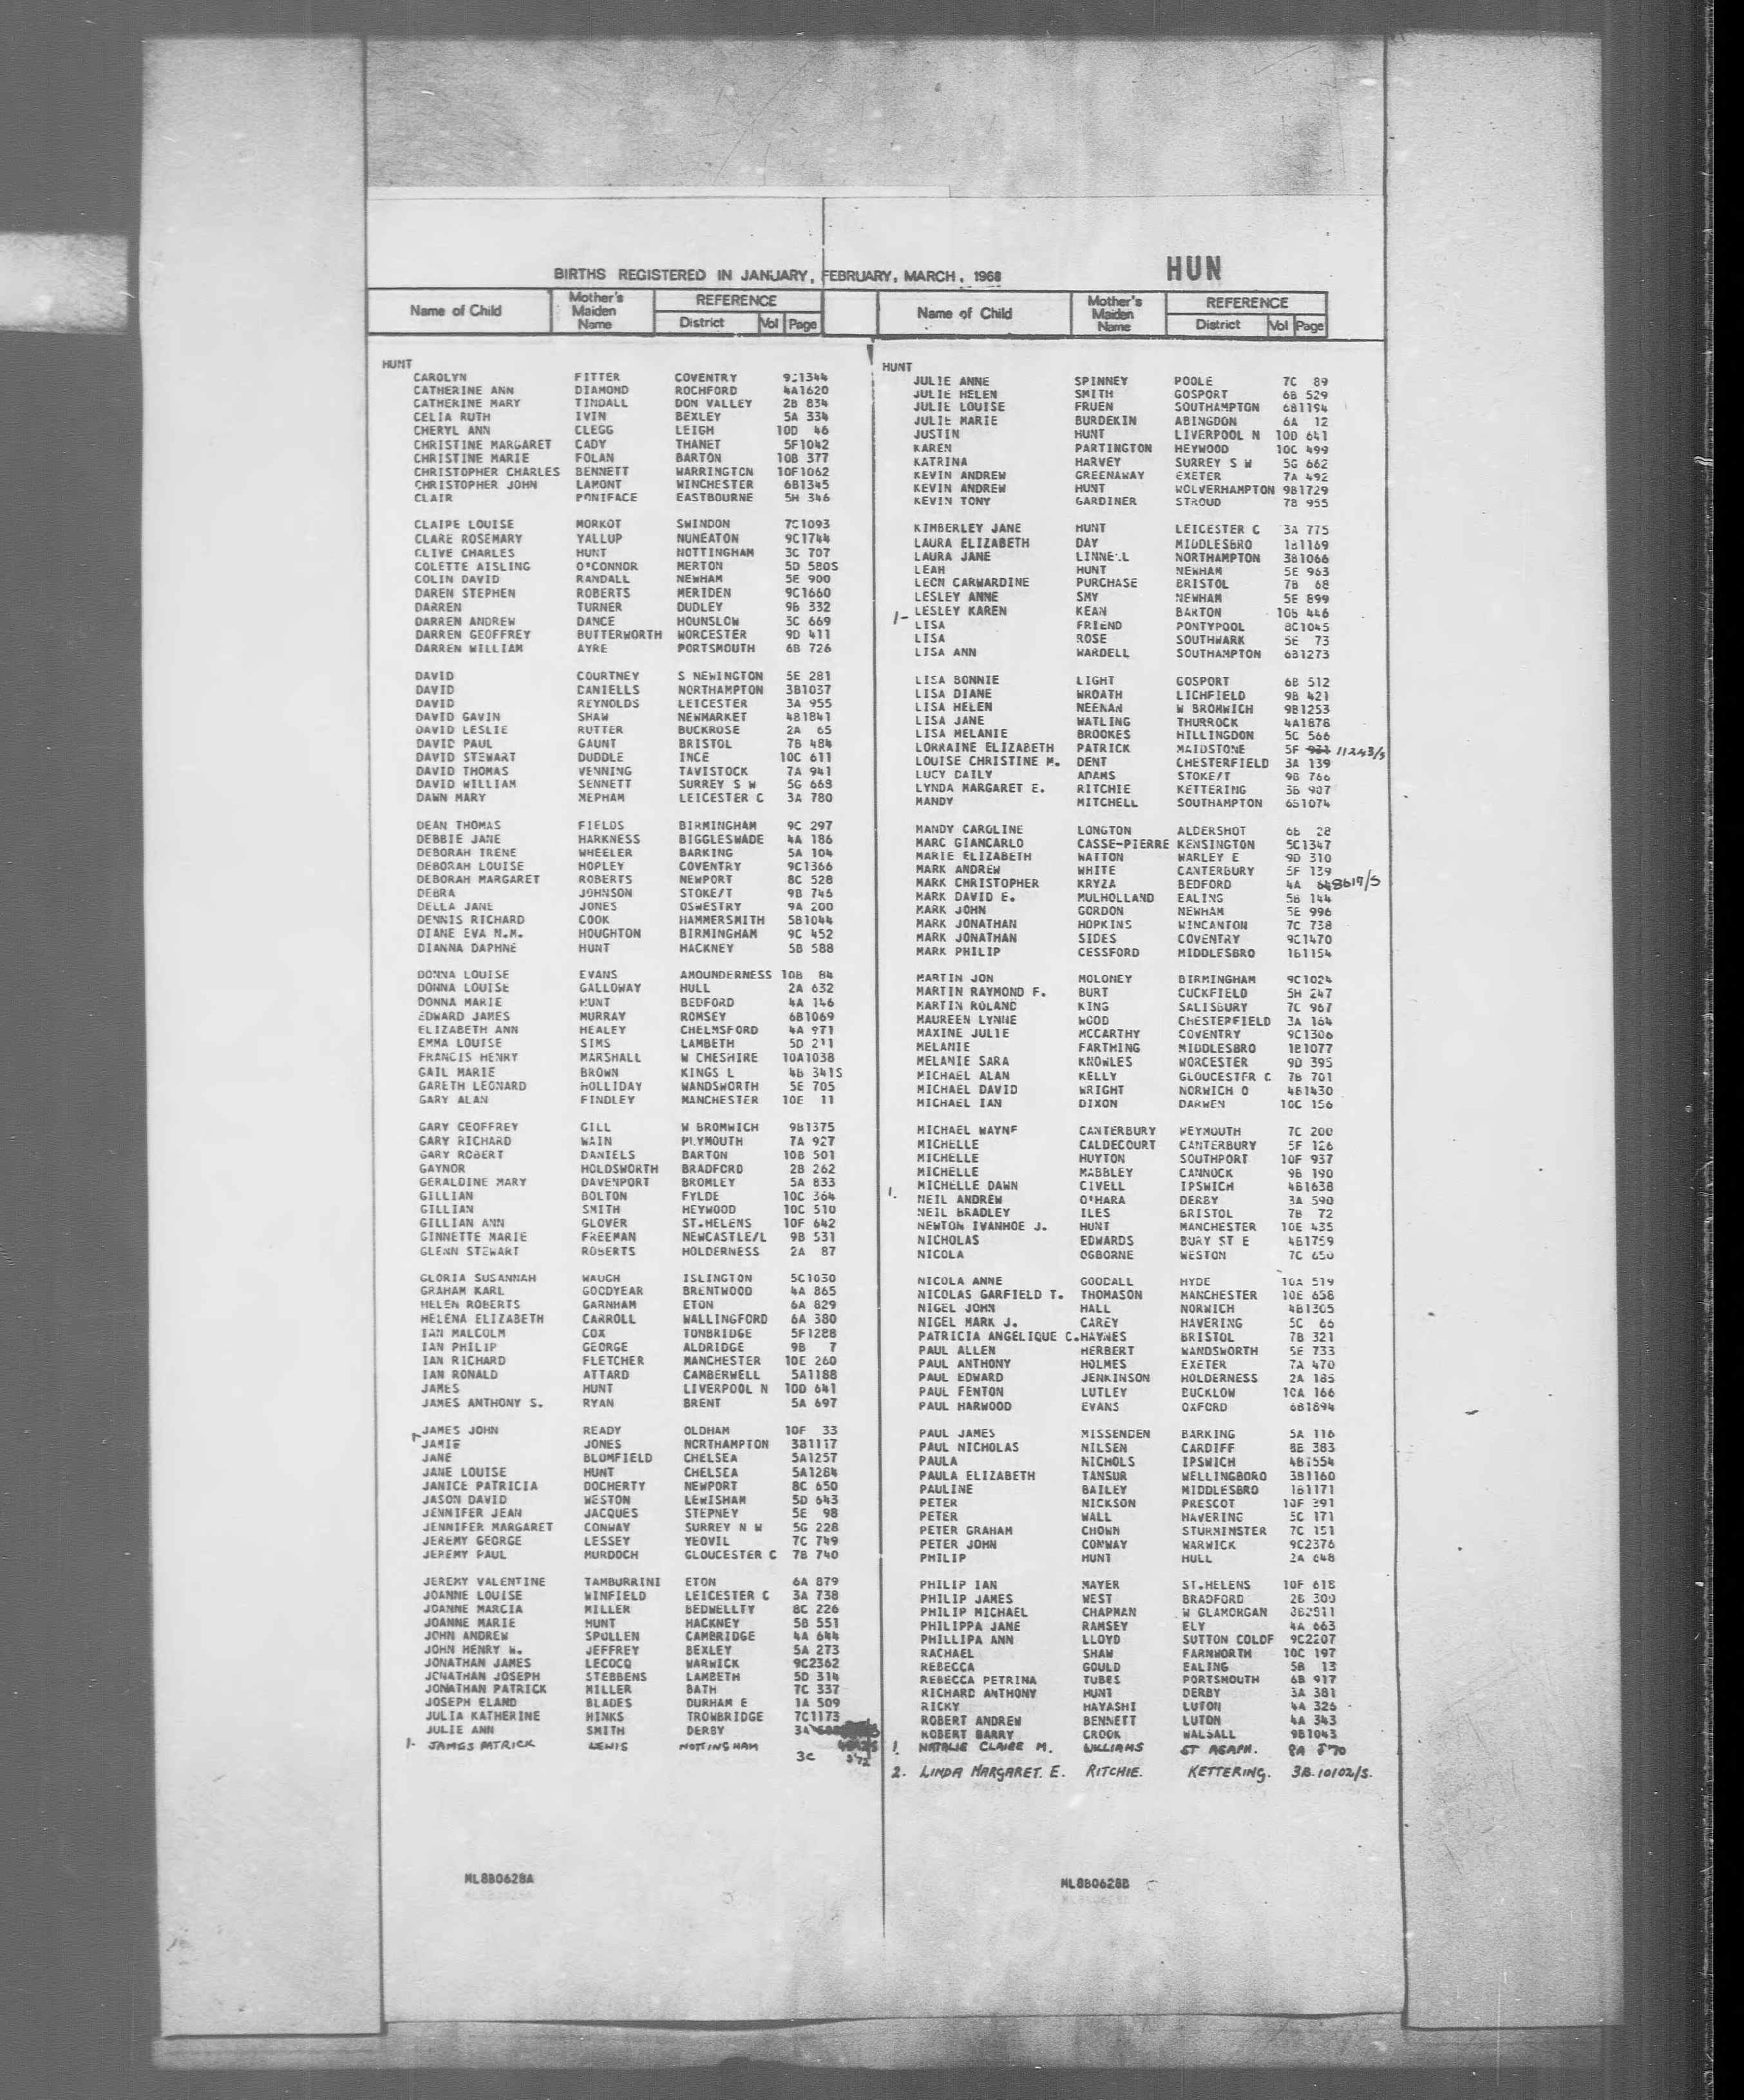 BIRTHS REGISTERED IN JANUARY, FEBRUARY, MARCH, 1968
HUN
Name of Child Mother's Maiden Name REFERENCE District Vol Page
HUNT
CAROLYN FITTER COVENTRY 9C1344
CATHERINE ANN DIAMOND ROCHFORD 4A1620
CATHERINE MARY TINDALL DON VALLEY 2B 834
CELIA RUTH IVIN BEXLEY 5A 334
CHERYL ANN CLEGG LEIGH 10D 46
CHRISTINE MARGARET CADY THANET 5F1042
CHRISTINE MARIE FOLAN BARTON 10B 377
CHRISTOPHER CHARLES BENNETT WARRINGTON 10F1062
CHRISTOPHER JOHN LAMONT WINCHESTER 6B1345
CLAIR PONIFACE EASTBOURNE 5H 346
CLAIPE LOUISE MORKOT SWINDON 7C1093
CLARE ROSEMARY YALLUP NUNEATON 9C1744
CLIVE CHARLES HUNT NOTTINGHAM 3C 707
COLETTE AISLING O'CONNOR MERTON 5D 580S
COLIN DAVID RANDALL NEWHAM 5E 900
DAREN STEPHEN ROBERTS MERIDEN 9C1660
DARREN TURNER DUDLEY 9B 332
DARREN ANDREW DANCE HOUNSLOW 5C 669
DARREN GEOFFREY BUTTERWORTH WORCESTER 9D 411
DARREN WILLIAM AYRE PORTSMOUTH 6B 726
DAVID COURTNEY S NEWINGTON 5E 281
DAVID DANIELLS NORTHAMPTON 3B1037
DAVID REYNOLDS LEICESTER 3A 955
DAVID GAVIN SHAW NEWMARKET 4B1841
DAVID LESLIE RUTTER BUCKROSE 2A 65
DAVID PAUL GAUNT BRISTOL 7B 484
DAVID STEWART DUDDLE INCE 10C 611
DAVID THOMAS VENNING TAVISTOCK 7A 941
DAVID WILLIAM SENNETT SURREY S W 5G 668
DAWN MARY MEPHAM LEICESTER C 3A 780
DEAN THOMAS FIELDS BIRMINGHAM 9C 297
DEBBIE JANE HARKNESS BIGGLESWADE 4A 186
DEBORAH IRENE WHEELER BARKING 5A 104
DEBORAH LOUISE HOPLEY COVENTRY 9C1366
DEBORAH MARGARET ROBERTS NEWPORT 8C 528
DEBRA JOHNSON STOKE/T 9B 746
DELLA JANE JONES OSWESTRY 9A 200
DENNIS RICHARD COOK HAMMERSMITH 5B1044
DIANE EVA N.M. HOUGHTON BIRMINGHAM 9C 452
DIANNA DAPHNE HUNT HACKNEY 5B 588
DONNA LOUISE EVANS AMOUNDERNESS 10B 84
DONNA LOUISE GALLOWAY HULL 2A 632
DONNA MARIE HUNT BEDFORD 4A 146
EDWARD JAMES MURRAY ROMSEY 6B1069
ELIZABETH ANN HEALEY CHELMSFORD 4A 971
EMMA LOUISE SIMS LAMBETH 5D 211
FRANCIS HENRY MARSHALL W CHESHIRE 10A1038
GAIL MARIE BROWN KINGS L 4B 341S
GARETH LEONARD HOLLIDAY WANDSWORTH 5E 705
GARY ALAN FINDLEY MANCHESTER 10E 11
GARY GEOFFREY GILL W BROMWICH 9B1375
GARY RICHARD WAIN PLYMOUTH 7A 927
GARY ROBERT DANIELS BARTON 10B 501
GAYNOR HOLDSWORTH BRADFORD 2B 262
GERALDINE MARY DAVENPORT BROMLEY 5A 833
GILLIAN BOLTON FYLDE 10C 364
GILLIAN SMITH HEYWOOD 10C 510
GILLIAN ANN GLOVER ST.HELENS 10F 642
GINNETTE MARIE FREEMAN NEWCASTLE/L 9B 531
GLENN STEWART ROBERTS HOLDERNESS 2A 87
GLORIA SUSANNAH WAUGH ISLINGTON 5C1030
GRAHAM KARL GOODYEAR BRENTWOOD 4A 865
HELEN ROBERTS GARNHAM ETON 6A 829
HELENA ELIZABETH CARROLL WALLINGFORD 6A 380
IAN MALCOLM COX TONBRIDGE 5F1288
IAN PHILIP GEORGE ALDRIDGE 9B 7
IAN RICHARD FLETCHER MANCHESTER 10E 260
IAN RONALD ATTARD CAMBERWELL 5A1188
JAMES HUNT LIVERPOOL N 10D 641
JAMES ANTHONY S. RYAN BRENT 5A 697
JAMES JOHN READY OLDHAM 10F 33
JAMIE JONES NORTHAMPTON 3B1117
JANE BLOMFIELD CHELSEA 5A1257
JANE LOUISE HUNT CHELSEA 5A1284
JANICE PATRICIA DOCHERTY NEWPORT 8C 650
JASON DAVID WESTON LEWISHAM 5D 643
JENNIFER JEAN JACQUES STEPNEY 5E 98
JENNIFER MARGARET CONWAY SURREY N W 5G 228
JEREMY GEORGE LESSEY YEOVIL 7C 749
JEREMY PAUL MURDOCH GLOUCESTER C 7B 740
JEREMY VALENTINE TAMBURRINI ETON 6A 879
JOANNE LOUISE WINFIELD LEICESTER C 3A 738
JOANNE MARCIA MILLER BEDWELLTY 8C 226
JOANNE MARIE HUNT HACKNEY 5B 551
JOHN ANDREW SPULLEN CAMBRIDGE 4A 644
JOHN HENRY W. JEFFREY BEXLEY 5A 273
JONATHAN JAMES LECOCQ WARWICK 9C2362
JONATHAN JOSEPH STEBBENS LAMBETH 5D 314
JONATHAN PATRICK MILLER BATH 7C 337
JOSEPH ELAND BLADES DURHAM E 1A 509
JULIA KATHERINE HINKS TROWBRIDGE 7C1173
JULIE ANN SMITH DERBY 3A
1- JAMES PATRICK LEWIS NOTTINGHAM 3C
ML8B0628A
Name of Child Mother's Maiden Name REFERENCE District Vol Page
HUNT
JULIE ANNE SPINNEY POOLE 7C 89
JULIE HELEN SMITH GOSPORT 6B 529
JULIE LOUISE FRUEN SOUTHAMPTON 6B1194
JULIE MARIE BURDEKIN ABINGDON 6A 12
JUSTIN HUNT LIVERPOOL N 10D 641
KAREN PARTINGTON HEYWOOD 10C 499
KATRINA HARVEY SURREY S W 5G 662
KEVIN ANDREW GREENAWAY EXETER 7A 492
KEVIN ANDREW HUNT WOLVERHAMPTON 9B1729
KEVIN TONY GARDINER STROUD 7B 955
KIMBERLEY JANE HUNT LEICESTER C 3A 775
LAURA ELIZABETH DAY MIDDLESBRO 1B1169
LAURA JANE LINNELL NORTHAMPTON 3B1066
LEAH HUNT NEWHAM 5E 963
LEON CARWARDINE PURCHASE BRISTOL 7B 68
LESLEY ANNE SMY NEWHAM 5E 899
LESLEY KAREN KEAN BARTON 10B 446
1- LISA FRIEND PONTYPOOL 8C1045
LISA ROSE SOUTHWARK 5E 73
LISA ANN WARDELL SOUTHAMPTON 6B1273
LISA BONNIE LIGHT GOSPORT 6B 512
LISA DIANE WROATH LICHFIELD 9B 421
LISA HELEN NEENAN W BROMWICH 9B1253
LISA JANE WATLING THURROCK 4A1878
LISA MELANIE BROOKES HILLINGDON 5C 566
LORRAINE ELIZABETH PATRICK MAIDSTONE 5F 931 11243/S
LOUISE CHRISTINE M. DENT CHESTERFIELD 3A 139
LUCY DAILY ADAMS STOKE/T 9B 766
LYNDA MARGARET E. RITCHIE KETTERING 3B 907
MANDY MITCHELL SOUTHAMPTON 6B1074
MANDY CAROLINE LONGTON ALDERSHOT 6B 28
MARC GIANCARLO CASSE-PIERRE KENSINGTON 5C1347
MARIE ELIZABETH WATTON WARLEY E 9D 310
MARK ANDREW WHITE CANTERBURY 5F 139
MARK CHRISTOPHER KRYZA BEDFORD 4A
MARK DAVID E. MULHOLLAND EALING 5B 144
MARK JOHN GORDON NEWHAM 5E 996
MARK JONATHAN HOPKINS WINCANTON 7C 738
MARK JONATHAN SIDES COVENTRY 9C1470
MARK PHILIP CESSFORD MIDDLESBRO 1B1154
MARTIN JON MOLONEY BIRMINGHAM 9C1024
MARTIN RAYMOND F. BURT CUCKFIELD 5H 247
MARTIN ROLAND KING SALISBURY 7C 967
MAUREEN LYNNE WOOD CHESTERFIELD 3A 164
MAXINE JULIE MCCARTHY COVENTRY 9C1306
MELANIE FARTHING MIDDLESBRO 1B1077
MELANIE SARA KNOWLES WORCESTER 9D 395
MICHAEL ALAN KELLY GLOUCESTER C 7B 701
MICHAEL DAVID WRIGHT NORWICH O 4B1430
MICHAEL IAN DIXON DARWEN 10C 156
MICHAEL WAYNE CANTERBURY WEYMOUTH 7C 200
MICHELLE CALDECOURT CANTERBURY 5F 126
MICHELLE HUYTON SOUTHPORT 10F 937
MICHELLE MABBLEY CANNOCK 9B 190
MICHELLE DAWN CIVELL IPSWICH 4B1638
1. NEIL ANDREW O'HARA DERBY 3A 590
NEIL BRADLEY ILES BRISTOL 7B 72
NEWTON IVANHOE J. HUNT MANCHESTER 10E 435
NICHOLAS EDWARDS BURY ST E 4B1759
NICOLA OGBORNE WESTON 7C 650
NICOLA ANNE GOODALL HYDE 10A 519
NICOLAS GARFIELD T. THOMASON MANCHESTER 10E 658
NIGEL JOHN HALL NORWICH 4B1305
NIGEL MARK J. CAREY HAVERING 5C 66
PATRICIA ANGELIQUE C.HAYNES BRISTOL 7B 321
PAUL ALLEN HERBERT WANDSWORTH 5E 733
PAUL ANTHONY HOLMES EXETER 7A 470
PAUL EDWARD JENKINSON HOLDERNESS 2A 185
PAUL FENTON LUTLEY BUCKLOW 10A 166
PAUL HARWOOD EVANS OXFORD 6B1894
PAUL JAMES MISSENDEN BARKING 5A 116
PAUL NICHOLAS NILSEN CARDIFF 8E 383
PAULA NICHOLS IPSWICH 4B1554
PAULA ELIZABETH TANSUR WELLINGBORO 3B1160
PAULINE BAILEY MIDDLESBRO 1B1171
PETER NICKSON PRESCOT 10F 391
PETER WALL HAVERING 5C 171
PETER GRAHAM CHOWN STURMINSTER 7C 151
PETER JOHN CONWAY WARWICK 9C2376
PHILIP HUNT HULL 2A 648
PHILIP IAN MAYER ST.HELENS 10F 618
PHILIP JAMES WEST BRADFORD 2B 300
PHILIP MICHAEL CHAPMAN W GLAMORGAN
PHILIPPA JANE RAMSEY ELY 4A 663
PHILLIPA ANN LLOYD SUTTON COLDF 9C2207
RACHAEL SHAW FARNWORTH 10C 197
REBECCA GOULD EALING 5B 13
REBECCA PETRINA TUBES PORTSMOUTH 6B 917
RICHARD ANTHONY HUNT DERBY 3A 381
RICKY HAYASHI LUTON 4A 326
ROBERT ANDREW BENNETT LUTON 4A 343
ROBERT BARRY CROOK WALSALL 9B1043
1. NATALIE CLAIRE M. WILLIAMS ST ASAPH. 8A 570
2. LINDA MARGARET. E. RITCHIE. KETTERING. 3B.10102/S.
ML8B0628B